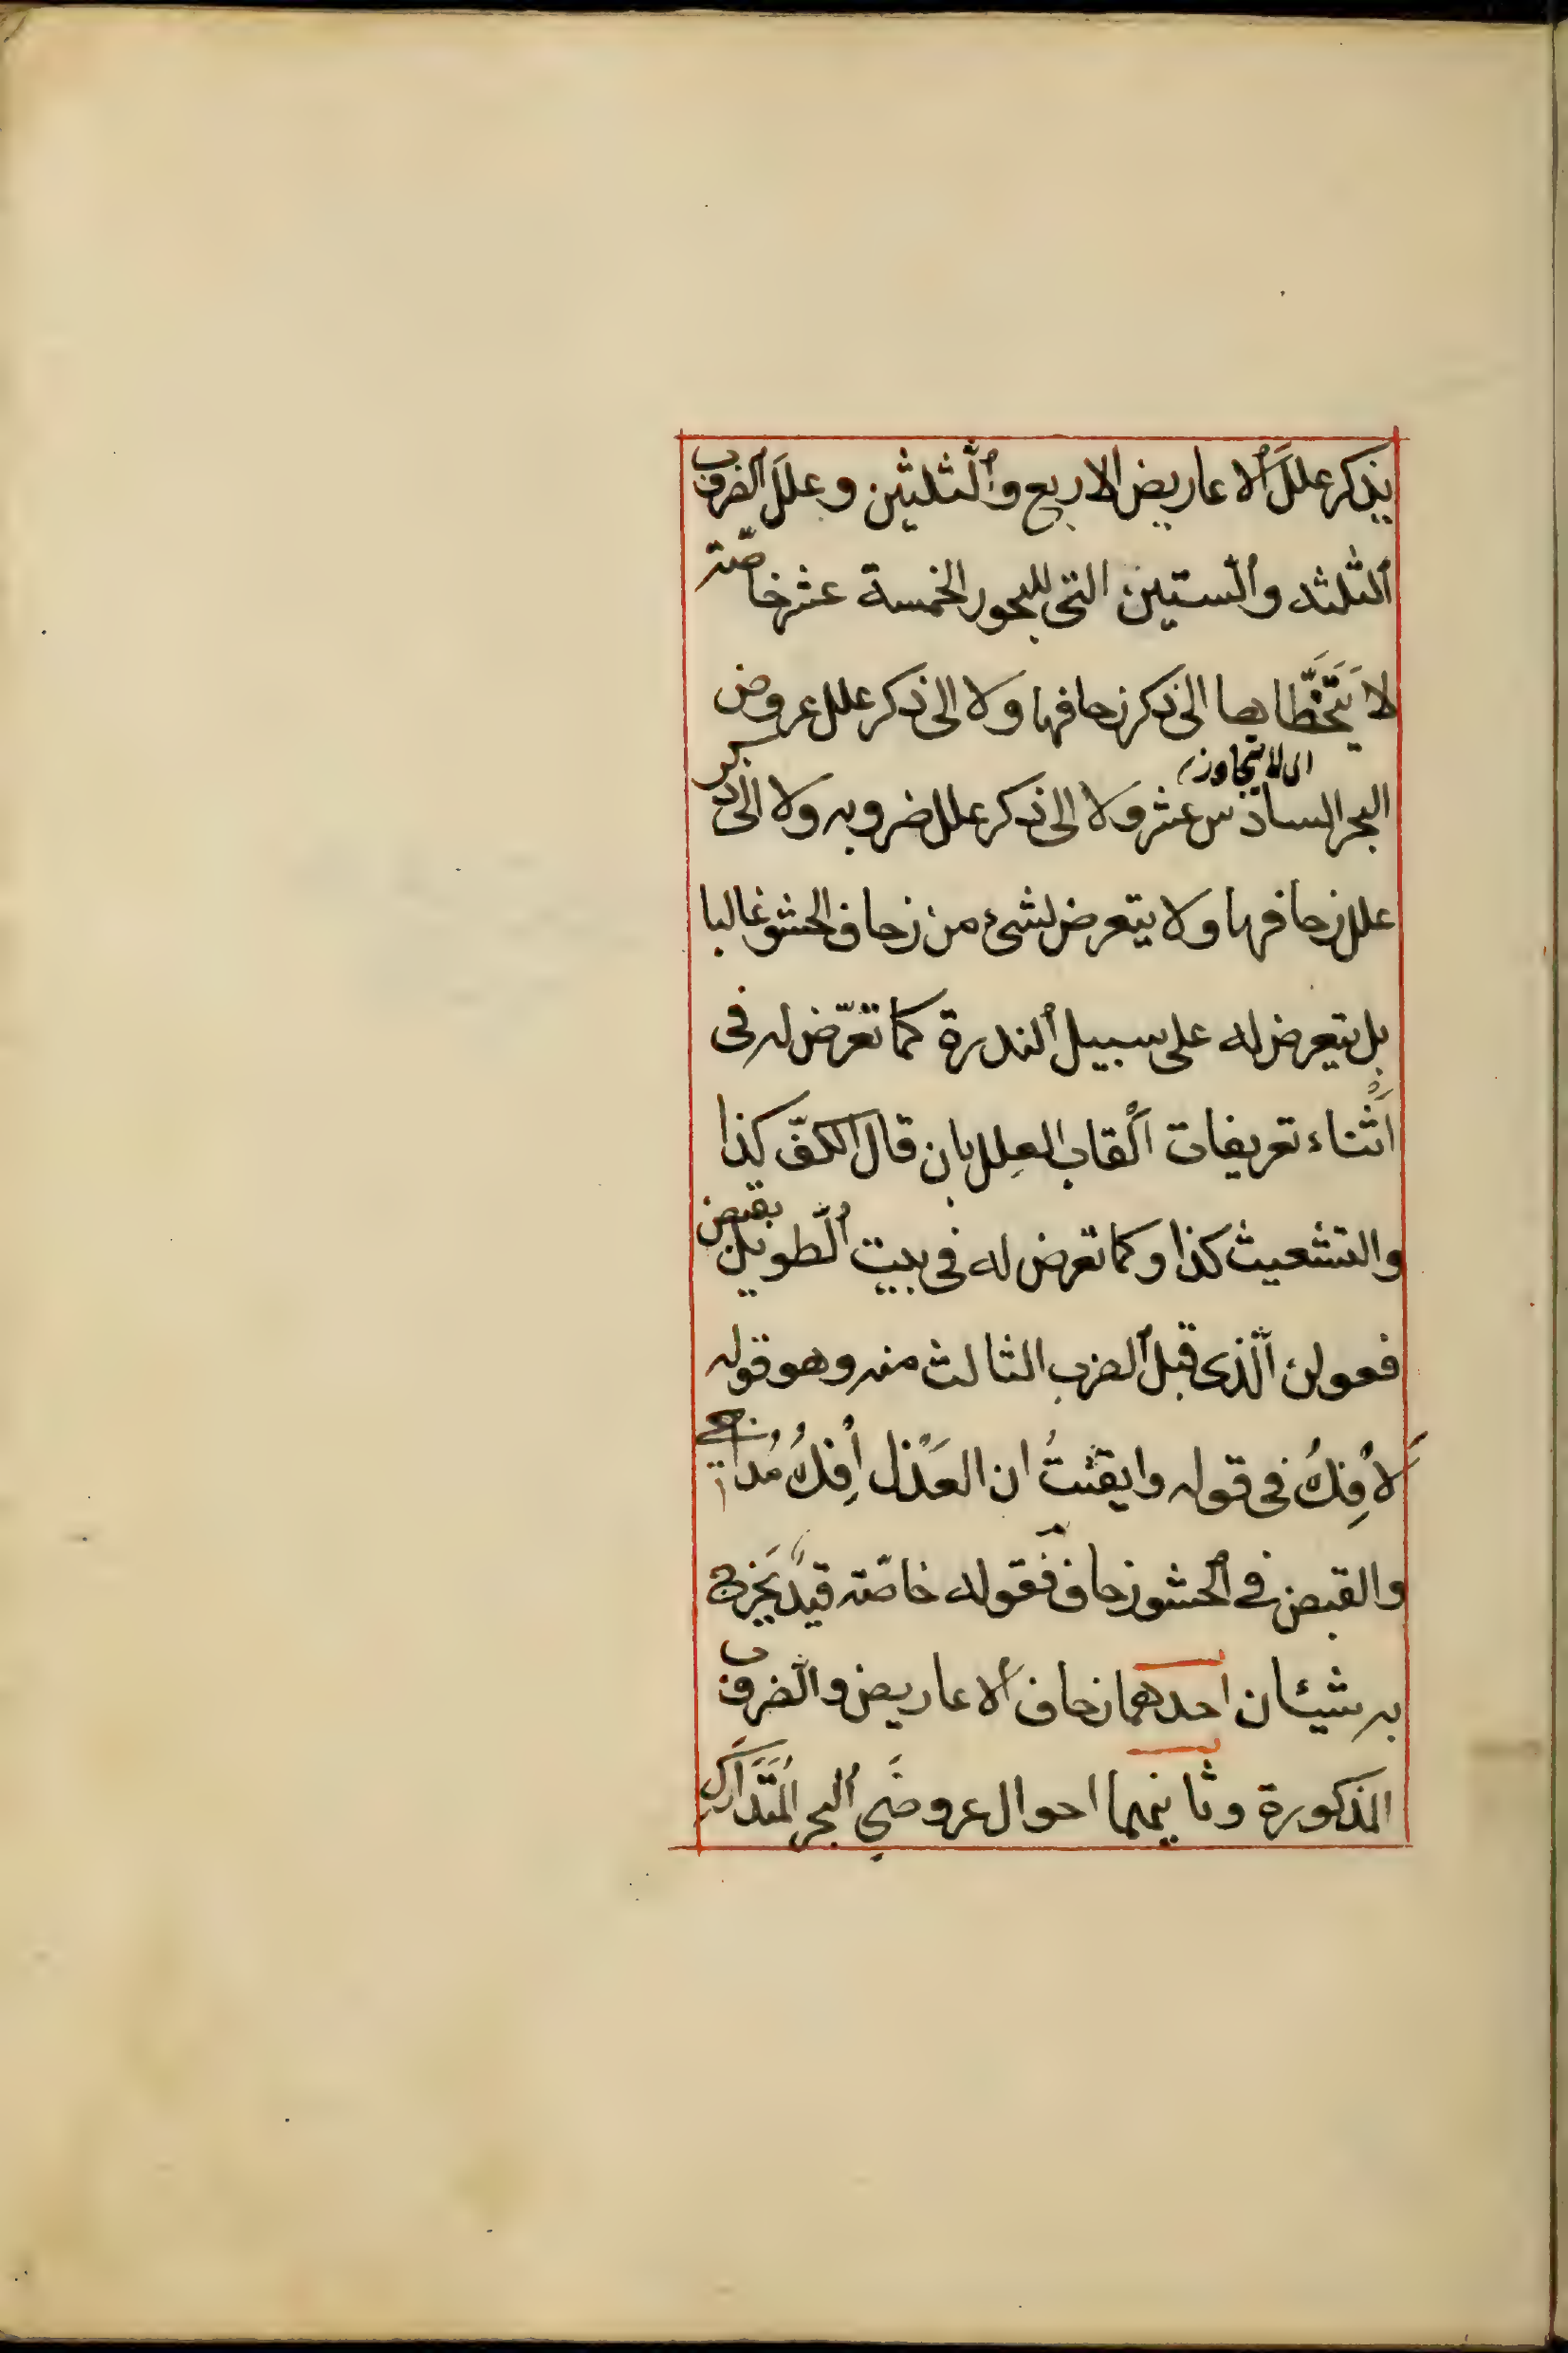 يذكر علل الاعاريض الاربع والثلثين وعلل الضروب
الثلثه والستين التى للبحور الخمسة عشر خاصّة
لا يَتَخَطَّاها الى ذكر زحافها ولا الى ذكر علل عروض
اى لا يتجاوز
البحر السادس عشر ولا الى ذكر علل ضروبه ولا الى ذكر
علل زحافها ولا يتعرض لشئ من زحاف الحشو غالبا
بل يتعرض له على سبيل الندرة كما تعرّض له فى
اَثْناء تعريفات اَلْقاب العِلل بان قال الكفّ كذا
والتشعيث كذا وكما تعرض له فى بيت الطويل بقبض
فعولن الّذى قبل الضرب الثالث منه وهو قوله
لاُفِكُ فى قوله وايقنتُ ان العَذْل اُفِكُ
والقبض فى الحشو زحاف فقوله خاصّة قيدٌ يَخرج
به شيئان احدهما زحاف الاعاريض والضروب
المذكورة وثانيهما احوال عروضَيِ البحر المُتَدَارَكِ